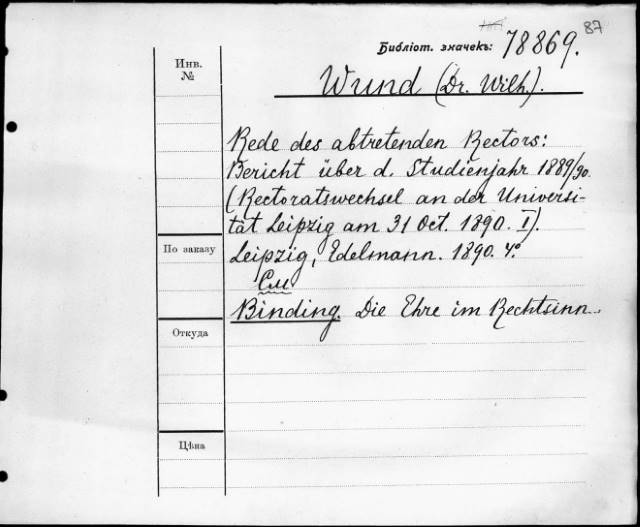 87
Библіот. значекъ: 78869.
Инв.
№
Wund (Dr. Wilh.).
Rede des abtretenden Rectors:
Bericht über d. Studienjahr 1889/90.
(Rectoratswechsel an der Universi-
tät Leipzig am 31 Oct. 1890. I).
По заказу
Leipzig, Edelmann. 1890. 4°.
См
Binding. Die Ehre im Rechtsinn..
Откуда
Цѣна